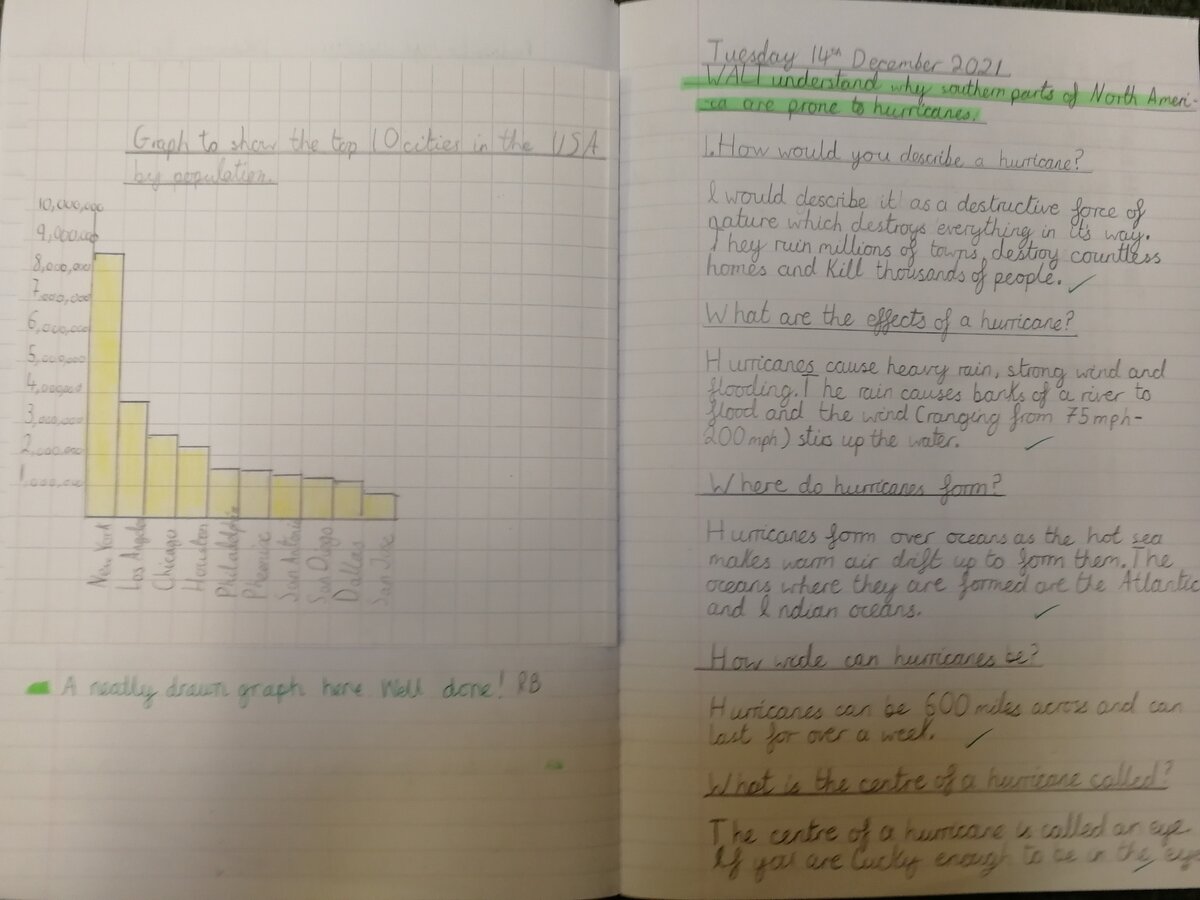 Graph to show the top 10 cities in the USA
by population.
10,000,000
9,000,000
8,000,000
7,000,000
6,000,000
5,000,000
4,000,000
3,000,000
2,000,000
1,000,000
New York
Los Angeles
Chicago
Houston
Philadelphia
Phoenix
San Antonio
San Diego
Dallas
San Jose
A neatly drawn graph here. Well done! RB
Tuesday 14th December 2021
WALT understand why southern parts of North Ameri-
-ca are prone to hurricanes.
1. How would you describe a hurricane?
I would describe it as a destructive force of
nature which destroys everything in it's way.
They ruin millions of towns, destroy countless
homes and kill thousands of people.
What are the effects of a hurricane?
Hurricanes cause heavy rain, strong wind and
flooding. The rain causes banks of a river to
flood and the wind (ranging from 75mph-
200mph) stirs up the water.
Where do hurricanes form?
Hurricanes form over oceans as the hot sea
makes warm air drift up to form them. The
oceans where they are formed are the Atlantic
and Indian oceans.
How wide can hurricanes be?
Hurricanes can be 600 miles across and can
last for over a week.
What is the centre of a hurricane called?
The centre of a hurricane is called an eye.
If you are lucky enough to be in the eye